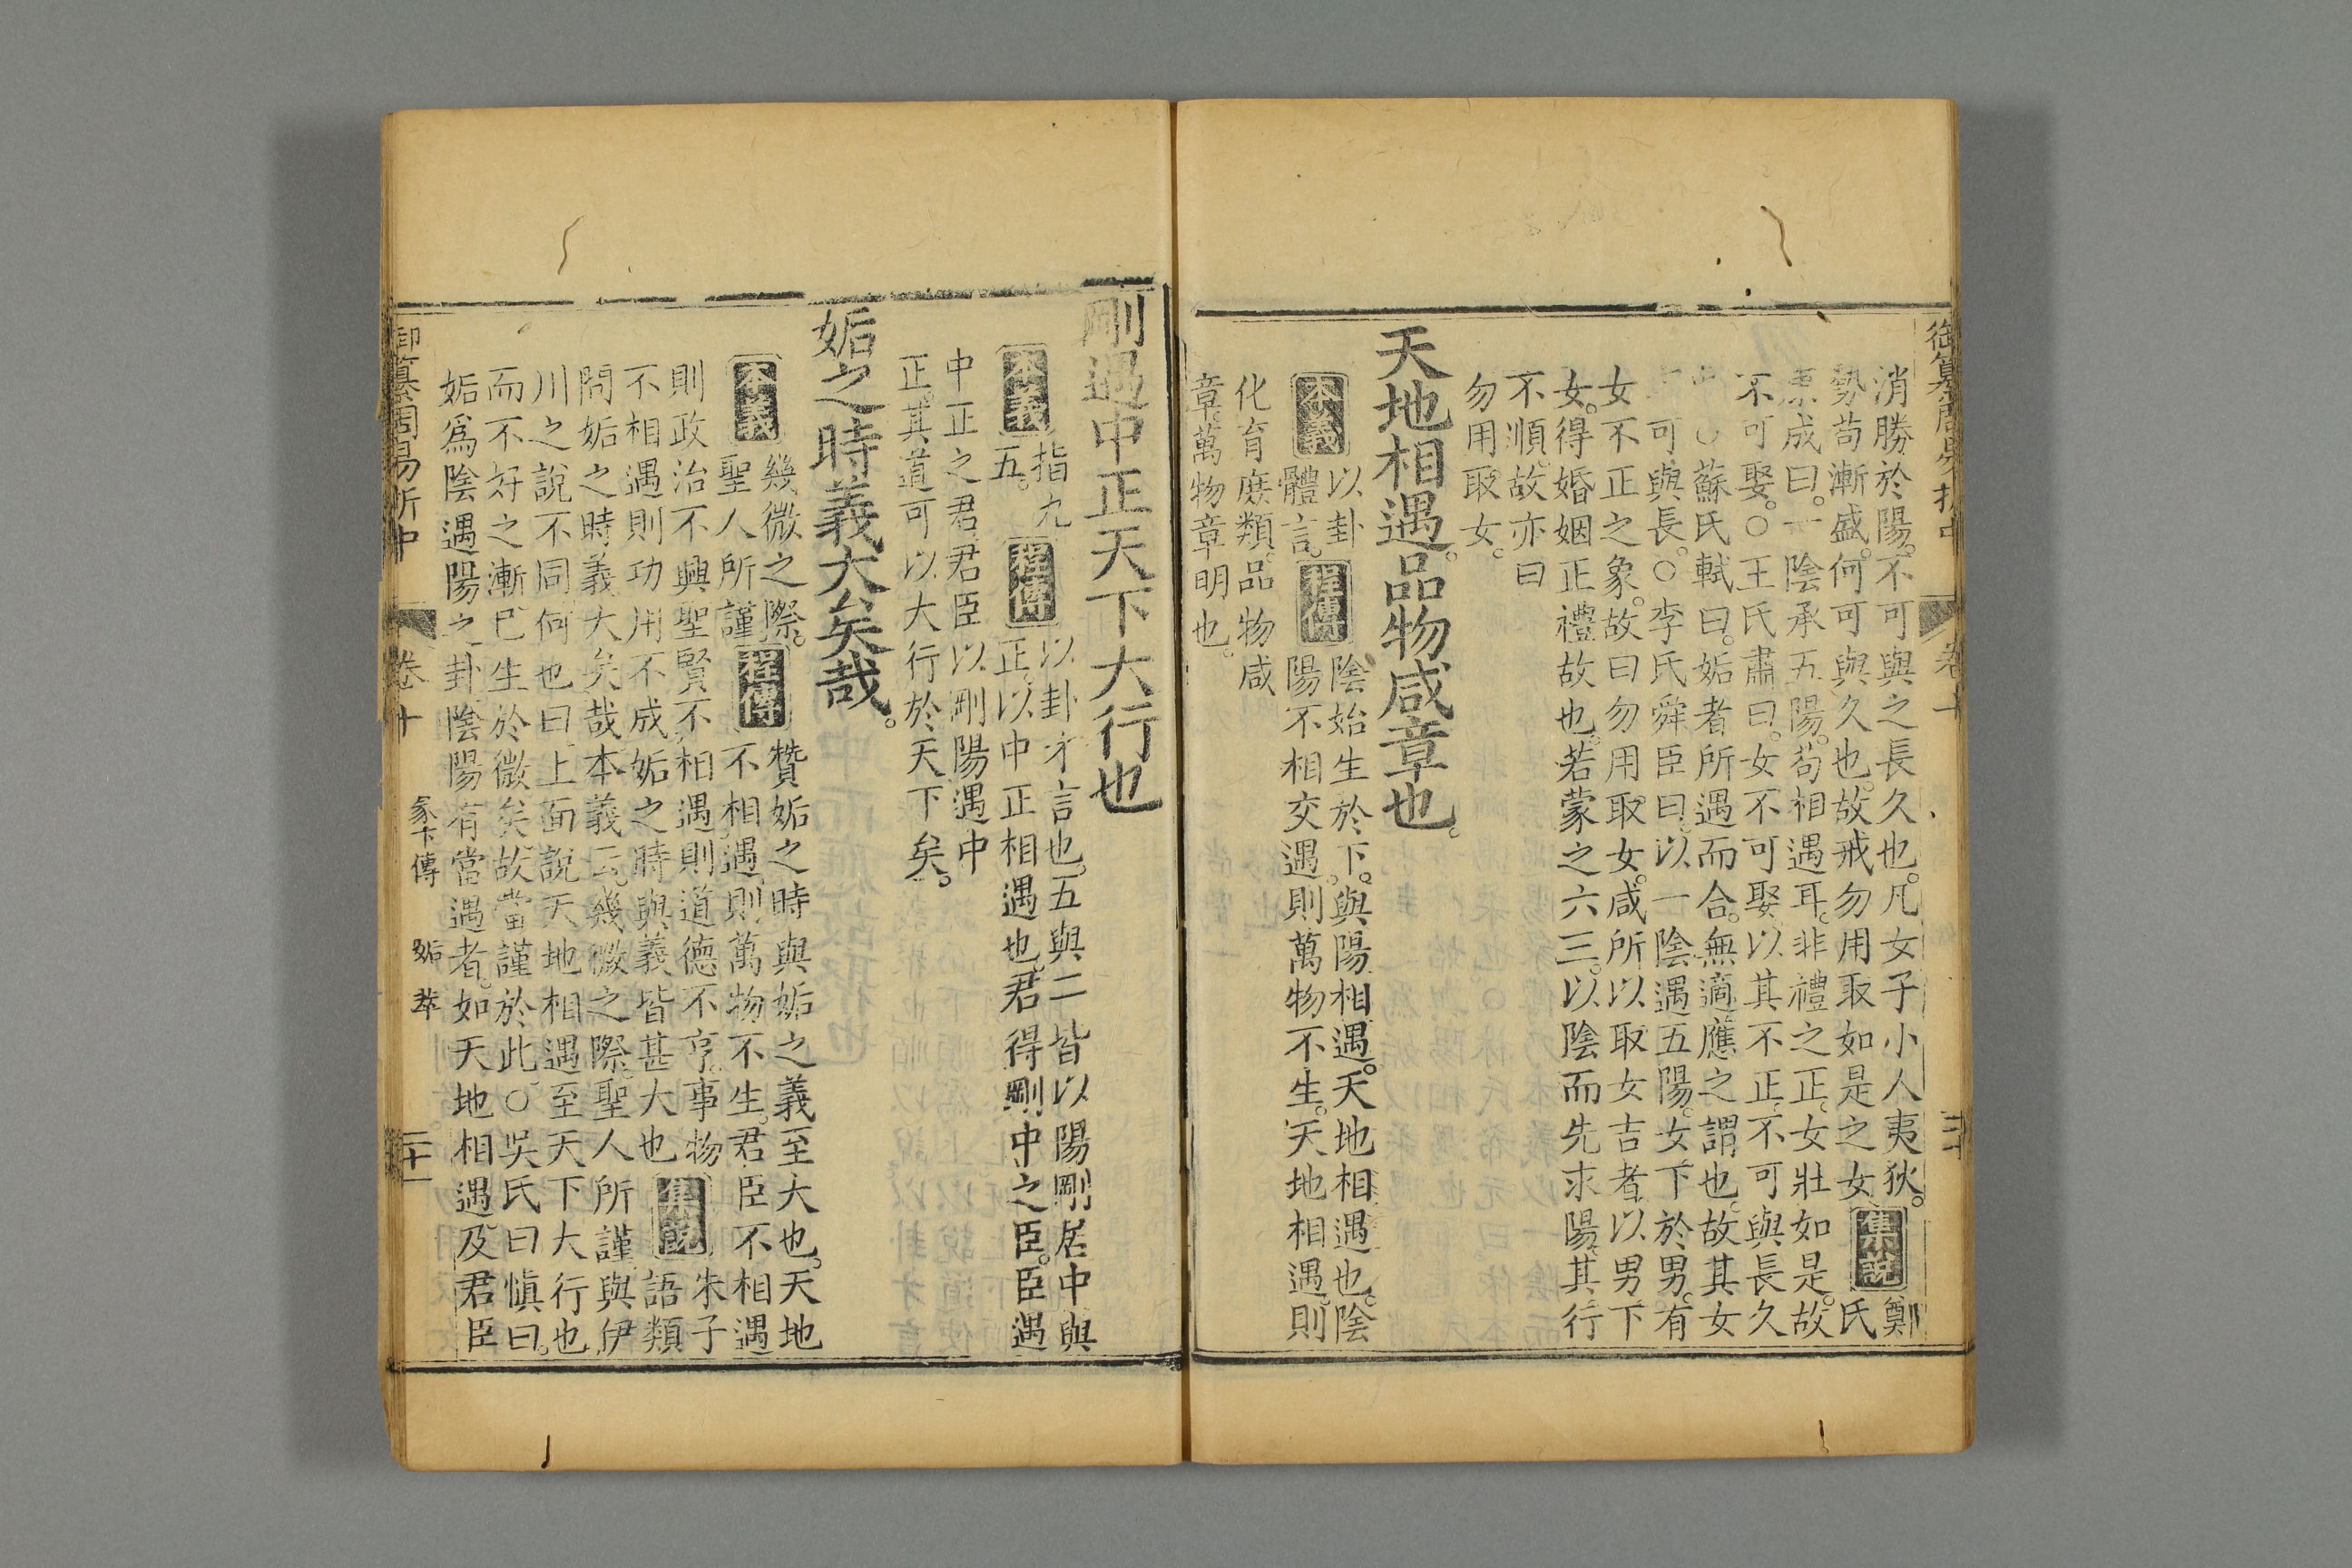 御纂周易折中
卷十
二十
消勝於陽。不可與之長久也。凡女子小人夷狄。
勢苟漸盛。何可與久也。故戒勿用取如是之女
集說
鄭
氏
東成曰。一陰承五陽。苟相遇耳。非禮之正。女壯如是。故
不可娶。○王氏肅曰。女不可娶。以其不正。不可與長久
也○蘇氏軾曰。姤者所遇而合。無適應之謂也。故其女
不可與長。○李氏舜臣曰。以一陰遇五陽。女下於男。有
女不正之象。故曰勿用取女。咸所以取女吉者。以男下
女。得婚姻正禮故也。若蒙之六三。以陰而先求陽。其行
不順。故亦曰
勿用取女。
天地相遇。品物咸章也。
本義
以卦
體言。
程傳
陰始生於下。與陽相遇。天地相遇也。陰
陽不相交遇。則萬物不生。天地相遇。則
化育庶類。品物咸
章。萬物章明也。
剛遇中正天下大行也
本義
指九
五。
程傳
以卦才言也。五與二皆以陽剛居中與
正。以中正相遇也。君得剛中之臣。臣遇
中正之君。君臣以剛陽遇中
正。其道可以大行於天下矣。
姤之時義大矣哉。
本義
幾微之際。
聖人所謹
程傳
贊姤之時與姤之義至大也。天地
不相遇。則萬物不生。君臣不相遇
則政治不興聖賢不相遇則道德不亨。事物
不相遇則功用不成姤之時與義皆甚大也
集說
朱子
語類
問姤之時義大矣哉本義云。幾微之際。聖人所謹與伊
川之說不同何也曰。上面說天地相遇至天下大行也
而不好之漸已生於微矣。故當謹於此。○吳氏曰愼曰。
姤爲陰遇陽之卦陰陽有當遇者。如天地相遇。及君臣
御纂周易折中
卷十
彖下傳
姤
萃
二十一